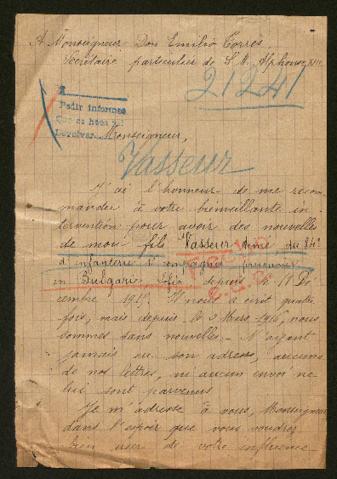 A Monseigneur Don Emilio Torres
Secrétaire particulier de S. M. Alphonse XIII
21241
Pedir informes
Monseigneur,
Vasseur
J'ai l'honneur de me recom
mander à votre bienveillante in
tervention pour avoir des nouvelles
de mon fils Vasseur du 84e
d'infanterie prisonnier
en Bulgarie depuis le 11 Dé
cembre 1915. Il nous a écrit quatre
fois, mais depuis le 3 Mars 1916, nous
sommes sans nouvelles. N'ayant
jamais eu son adresse, aucune
de nos lettres, ni aucun envoi ne
lui sont parvenus
Je m'adresse à vous, Monseigneur
dans l'espoir que vous voudrez
bien user de votre influence